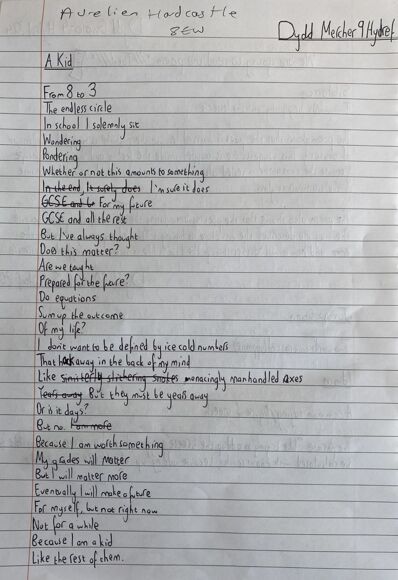 Aurelien Hardcastle
8EW
Dydd Mercher 9 Hydref
A Kid
From 8 to 3
The endless circle
In school I solemnly sit
Wondering
Pondering
Whether or not this amounts to something
In the end, It surely does I'm sure it does
GCSE and For my future
GCSE and all the rest
But I've always thought
Does this matter?
Are we taught
Prepared for the future?
Do equations
Sum up the outcome
Of my life?
I don't want to be defined by ice cold numbers
That hack away in the back of my mind
Like sinisterly slithering snakes menacingly manhandled axes
Years away But they must be years away
Or is it days?
But no. I am more
Because I am worth something
My grades will matter
But I will matter more
Eventually I will make a future
For myself, but not right now
Not for a while
Because I am a kid
Like the rest of them.